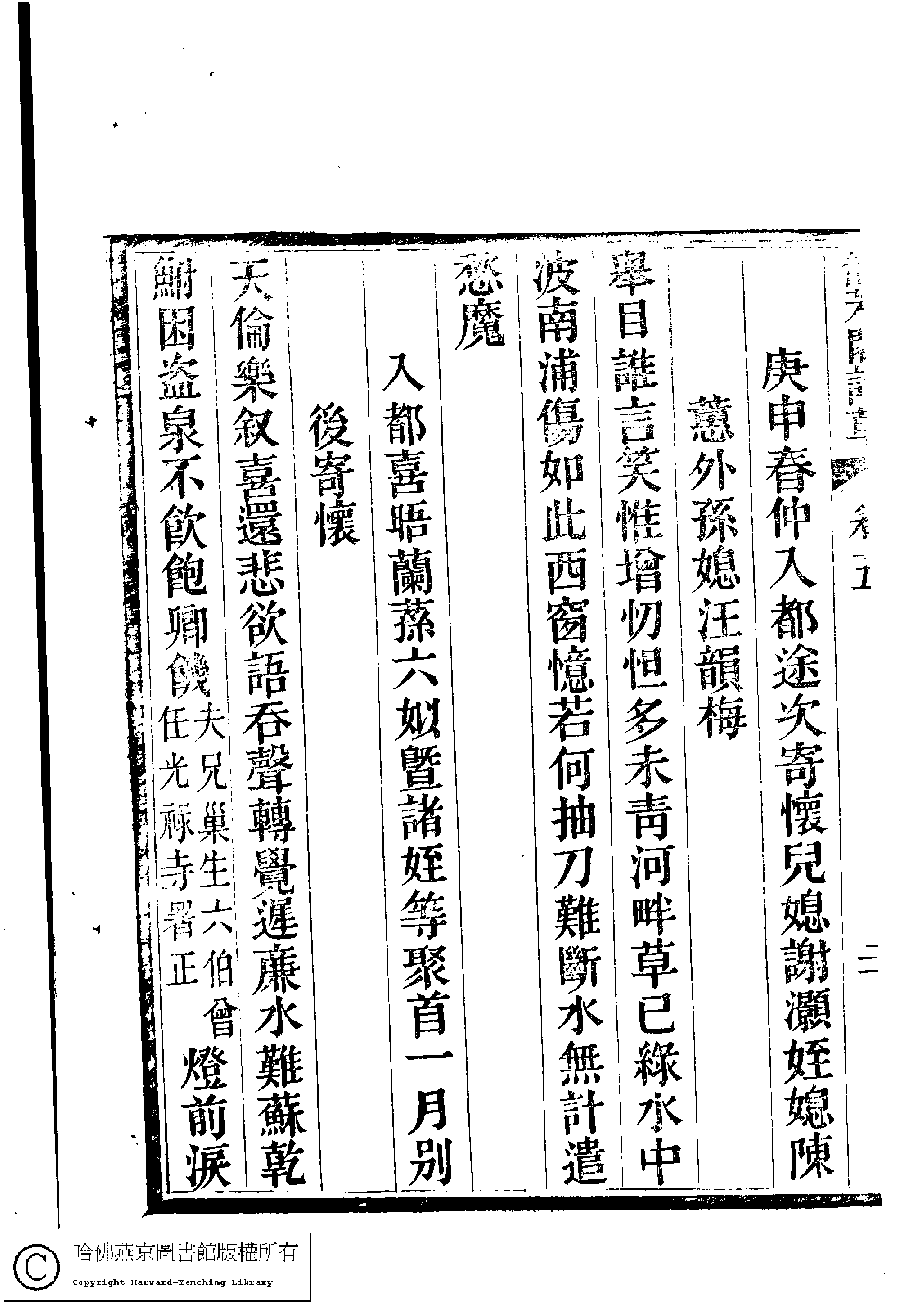 庚申春仲入都途次寄懷兒媳謝灝姪媳陳
蕙外孫媳汪韻梅
舉目誰言笑惟增忉怛多未靑河畔草已綠水中
波南浦傷如此西窗憶若何抽刀難斷水無計遣
愁魔
入都喜晤蘭蓀六姒曁諸姪等聚首一月別
後寄懷
天倫樂叙喜還悲欲語吞聲轉覺遲廉水難蘇乾
鮒困盜泉不飮飽卿饑
夫兄巢生六伯曾
任光祿寺署正
燈前淚
卷五
二
哈佛燕京圖書館版權所有
Copyright Harvard-Yenching Library